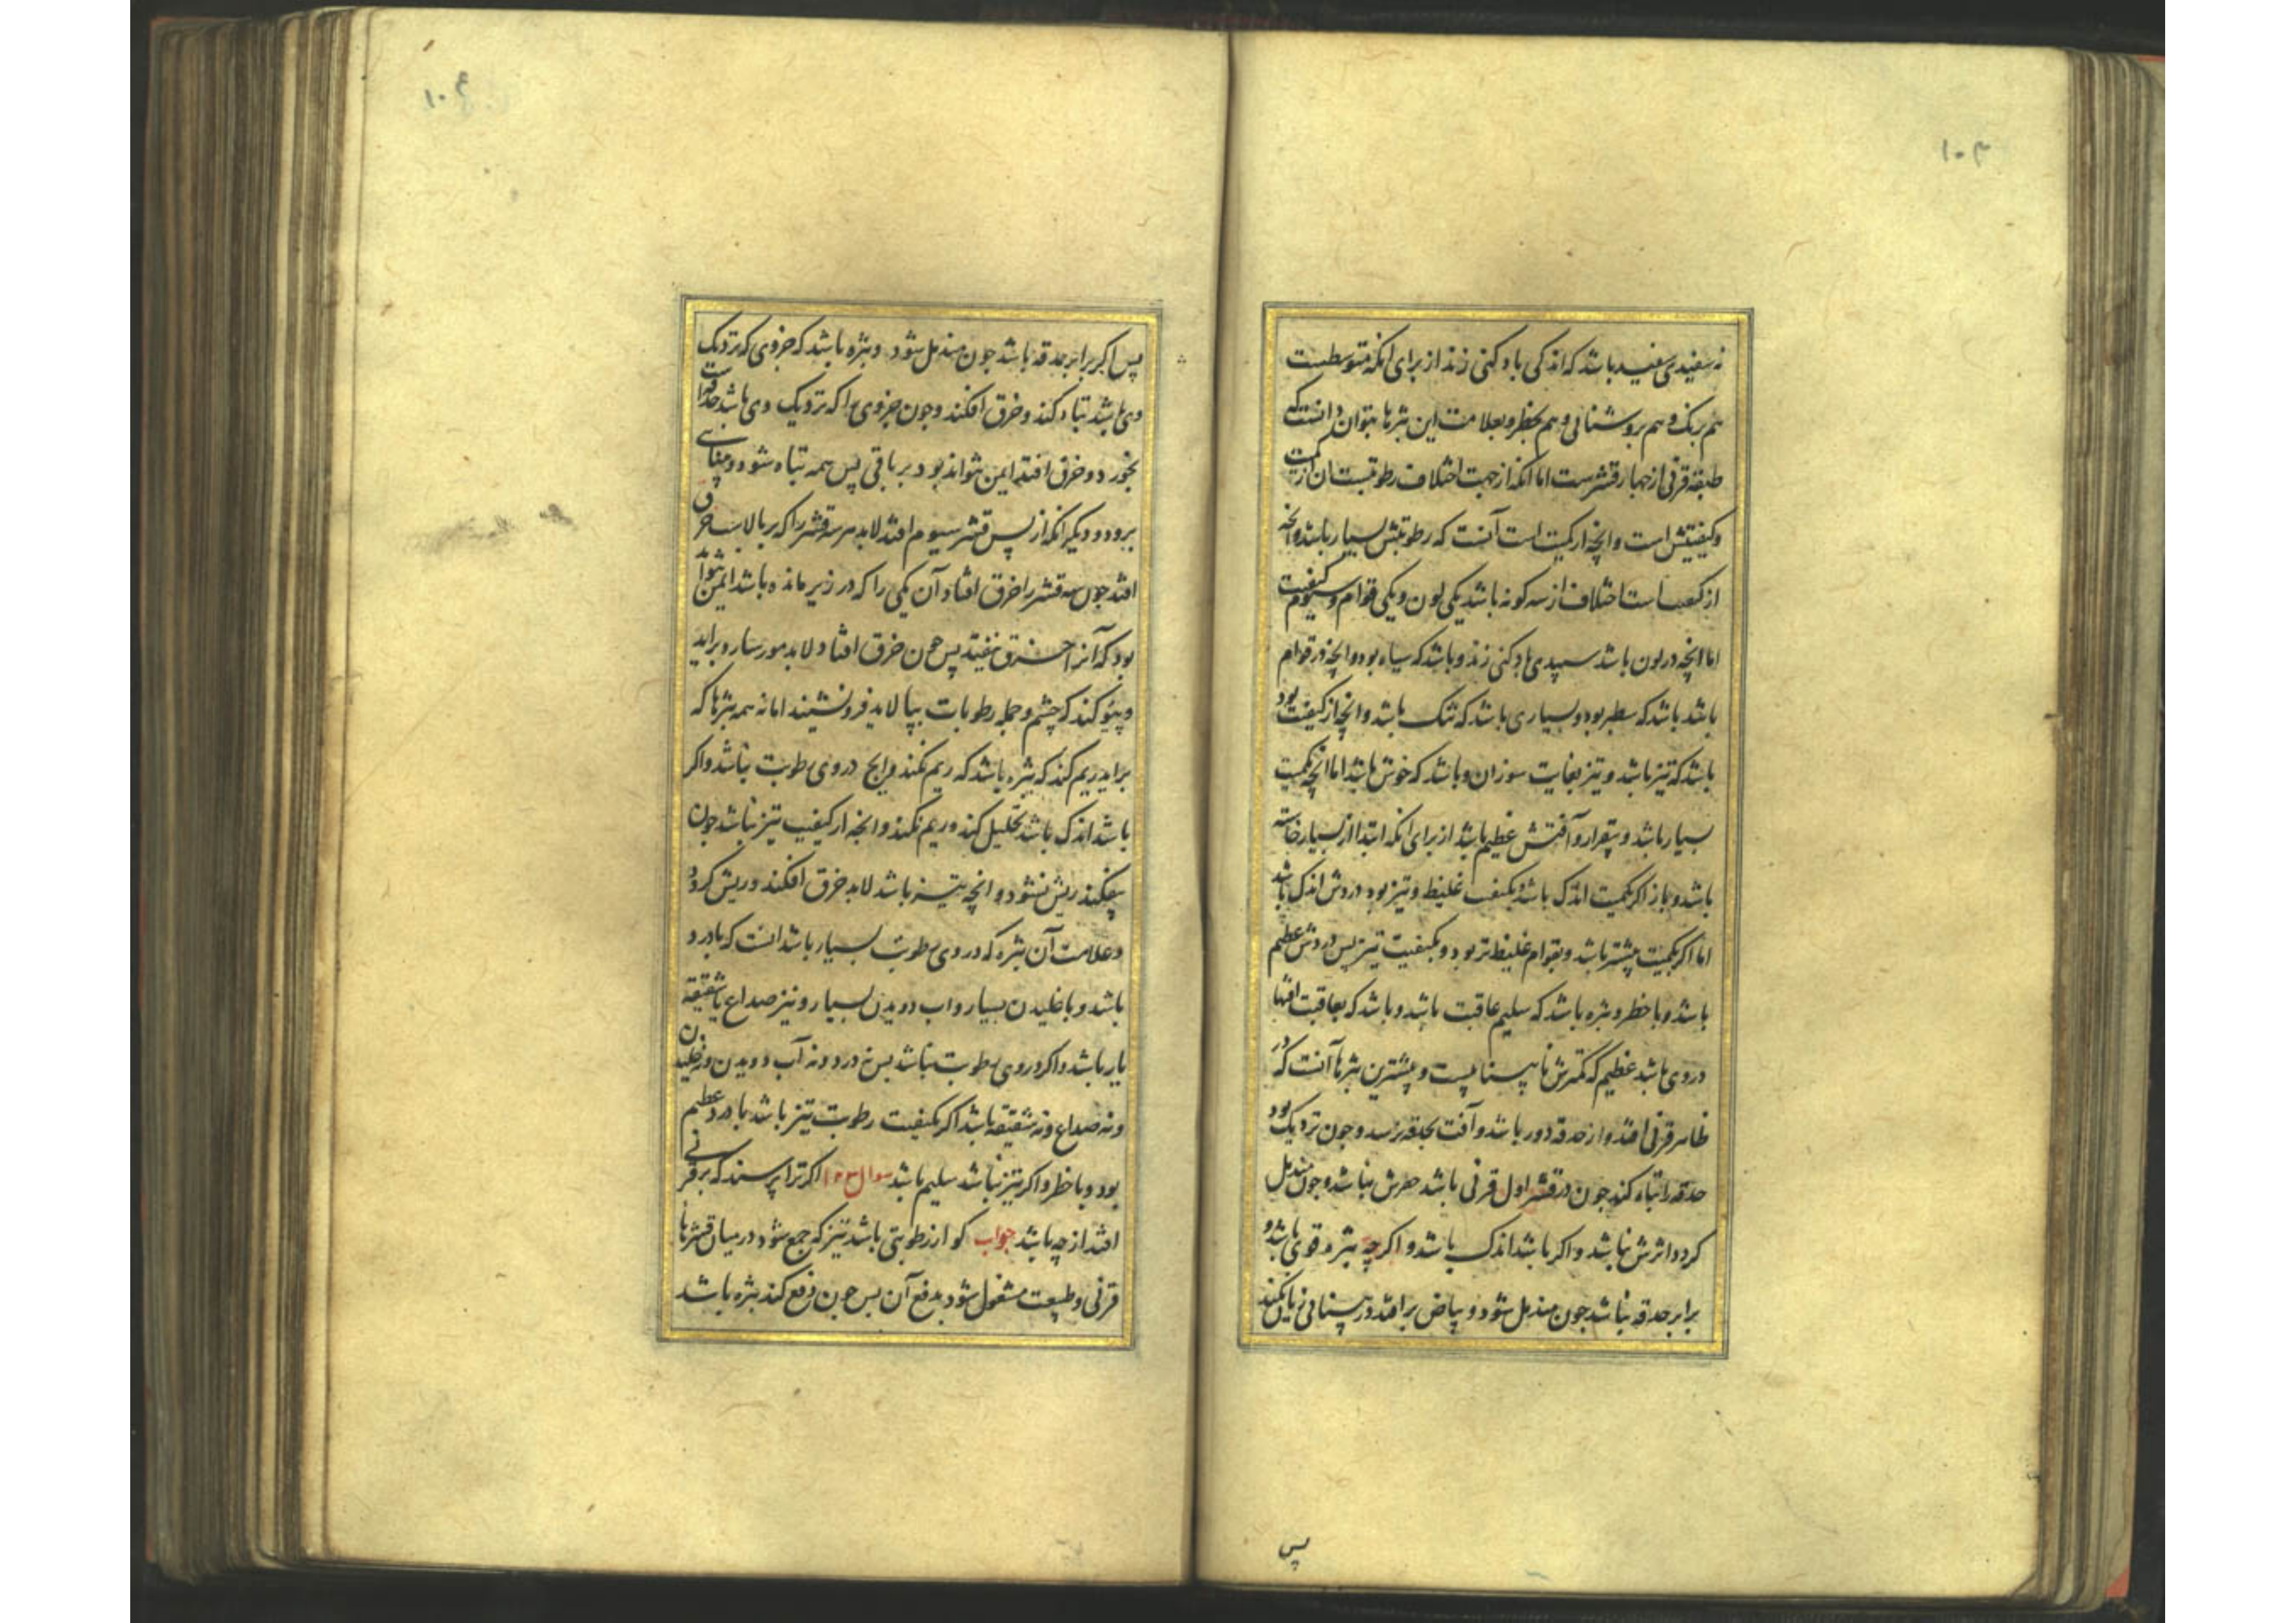 ۱۰۳
نه سفیدی سفید باشد که اندکی باد کنی زند از برای انکه متوسطست
هم برنک و هم بروشنائی و هم بخطر و بعلامت این بثرها بتوان دانست که
طبقه قرنی از چهار قشرست اما انکه از جهت اختلاف رطوبتست ان از کمیت
و کیفیتش است و انچه از کمیت است آنست که رطوبتش بسیار باشد و انچه
از کیفیت است اختلاف از سه کونه باشد یکی لون و یکی قوام و سیوم کیفیت
اما انچه در لون باشد سپیدی باد کنی زند و باشد که سیاه بود و انچه در قوام
باشد باشد که سطبر بود و بسیاری باشد که تنک باشد و انچه از کیفیت بود
باشد که تیز باشد و تیز بغایت سوزان و باشد که خوش باشد اما انچه بکمیت
بسیار باشد و بیقرار و آفتش عظیم باشد از برای انکه ابتدا از بسیار خاسته
باشد و باز اکر بکمیت اندک باشد و بکیفیت غلیظ و تیز بود دردش اندک باشد
اما اکر بکمیت بیشتر باشد و بقوام غلیظ تر بود و بکیفیت تیز پس دردش عظیم
باشد و با خطر و بثره باشد که سلیم عاقبت باشد و باشد که بعاقبت افتها
در وی باشد عظیم که کمترش نا بیناییست و بیشترین بثرها آنست که در
ظاهر قرنی افتد و از حدقه دور باشد و آفت بحدقه نرسد و چون نزدیک بود
حدقه را تباه کند چون در قشر اول قرنی باشد حفرش نباشد و چون مندمل
کردد اثرش نباشد و اکر باشد اندک باشد و اکر چه بثره قوی باشد و
برابر حدقه نباشد چون مندمل شود و بیاض بر افتد در بینائی زیان نکند
پس
۱۰۴
پس اکر برابر حدقه باشد چون مندمل شود و بثره باشد که جزوی که نزدیک
وی باشد تباه کند و خرق افکند و چون جزوی را که نزدیک وی باشد
بخورد و خرق افتد ایمن نتواند بود بر باقی پس همه تباه شود و بینائی
برود و دیکر انکه از پس قشر سیوم افتد لابد هر سه قشر را که بر بالاست خرق
افتد چون سه قشر را خرق افتاد آن یکی را که در زیر مانده باشد ایمن نتوان
بود که آنرا خرق نیفتد پس چون خرق افتاد لابد مورسارو براید
و نتو کند که چشم و جمله رطوبات بپالاید فرو نشیند اما نه همه بثرها که
براید ریم کند که بثره باشد که ریم نکند و انچ در وی رطوبت نباشد و اکر
باشد اندک باشد تحلیل کند و ریم نکند و انچه از کیفیت تیز نباشد چون
بیفکند ریش نشود و انچه تیز باشد لابد خرق افکند و ریش کردد
و علامت آن بثره که در وی رطوبت بسیار باشد انست که با درد
باشد و با خلیدن بسیار و اب دویدن بسیار و نیز صداع یا شقیقه
یار باشد و اکر در وی رطوبت نباشد پس نه درد و نه آب دویدن و نه خلیدن
و نه صداع و نه شقیقه باشد اکر بکیفیت رطوبت تیز باشد با درد عظیم
بود و با خطر و اکر تیز نباشد سلیم باشد سوال ۱۰۳ اکر ترا پرسند که بر قرنی
افتد از چه باشد جواب کو از رطوبتی باشد تیز که جمع شود در میان قشرها
قرنی و طبیعت مشغول شود بدفع آن پس چون دفع کند بثره باشد